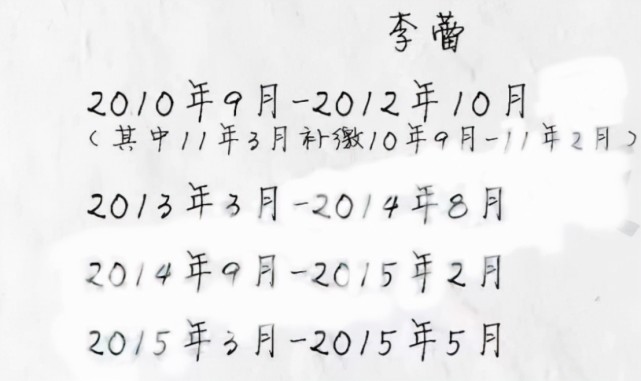 李蕾
2010年9月-2012年10月
(其中11年3月补缴10年9月-11年2月)
2013年3月-2014年8月
2014年9月-2015年2月
2015年3月-2015年5月